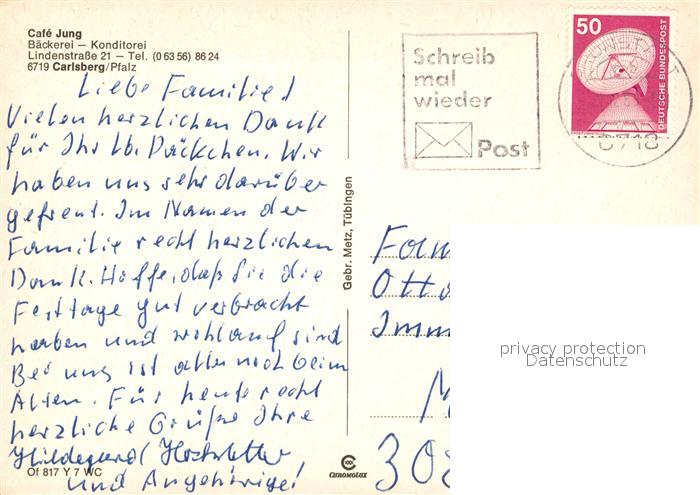 Café Jung
Bäckerei — Konditorei
Lindenstraße 21 — Tel. (0 63 56) 86 24
6719 Carlsberg/Pfalz
Liebe Familie!
Vielen herzlichen Dank
für Ihr lb. Päckchen. Wir
haben uns sehr darüber
gefreut. Im Namen der
Familie recht herzlichen
Dank. Hoffe, daß Sie die
Festtage gut verbracht
haben und wohlauf sind
Bei uns ist alles noch beim
Alten. Für heute recht
herzliche Grüße Ihre
Hildegard Hochstetter
und Angehörige!
Of 817 Y 7 WC
Gebr. Metz, Tübingen
CHROMOLUX
Schreib
mal
wieder
Post
50
DEUTSCHE BUNDESPOST
6718
Fam
Otto
Imm
privacy protection
Datenschutz
M
308